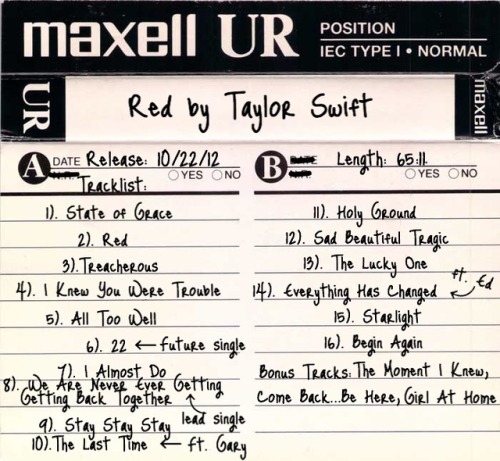 maxell UR
POSITION
IEC TYPE I • NORMAL
UR
Red by Taylor Swift
maxell
A DATE Release: 10/22/12
YES NO
Tracklist:
1). State of Grace
2). Red
3).Treacherous
4). I Knew You Were Trouble
5). All Too Well
6). 22 ← future single
7). I Almost Do
8). We Are Never Ever Getting
Getting Back Together
lead single
9). Stay Stay Stay
10).The Last Time ← ft. Gary
B Length: 65:11
YES NO
11). Holy Ground
12). Sad Beautiful Tragic
13). The Lucky One
14). Everything Has Changed ft. Ed
15). Starlight
16). Begin Again
Bonus Tracks: The Moment I Knew,
Come Back...Be Here, Girl At Home